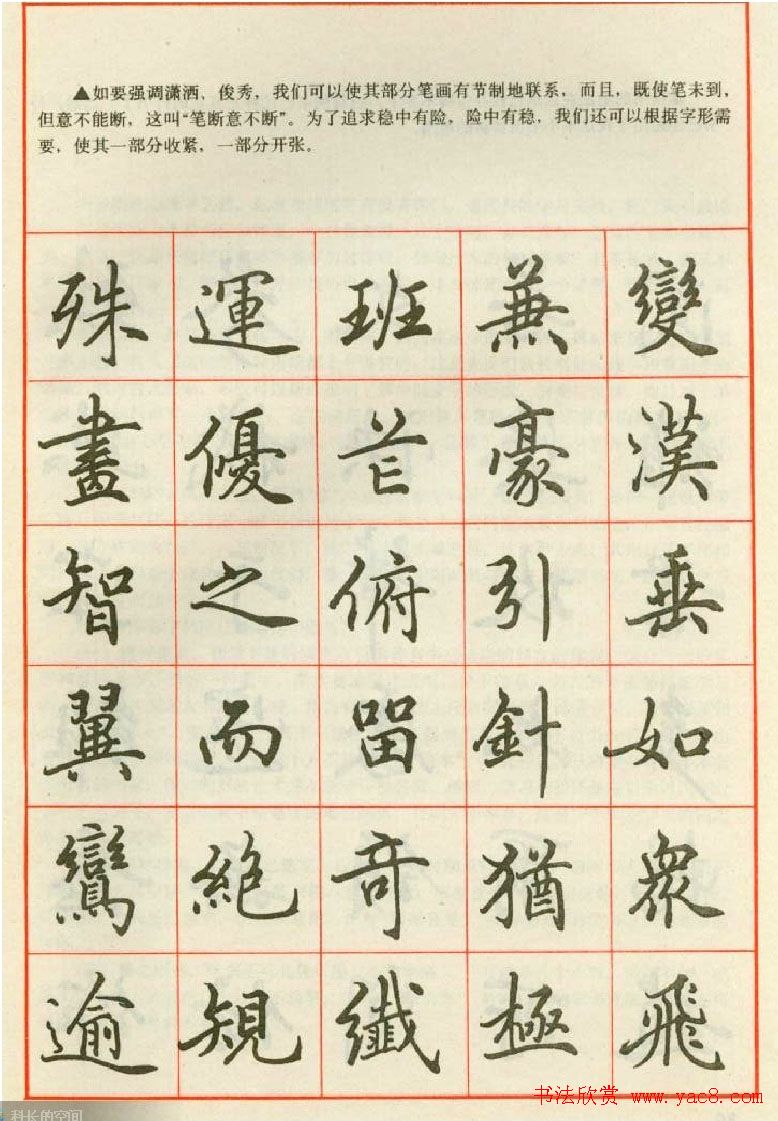 ▲如要强调潇洒、俊秀，我们可以使其部分笔画有节制地联系，而且，既使笔未到，
但意不能断，这叫“笔断意不断”。为了追求稳中有险，险中有稳，我们还可以根据字形需
要，使其一部分收紧，一部分开张。
變漢垂如衆飛
兼豪引針猶極
班芒俯留奇纖
運優之而絶規
殊畫智翼鸞逾
书法欣赏 www.yac8.com
科长的空间